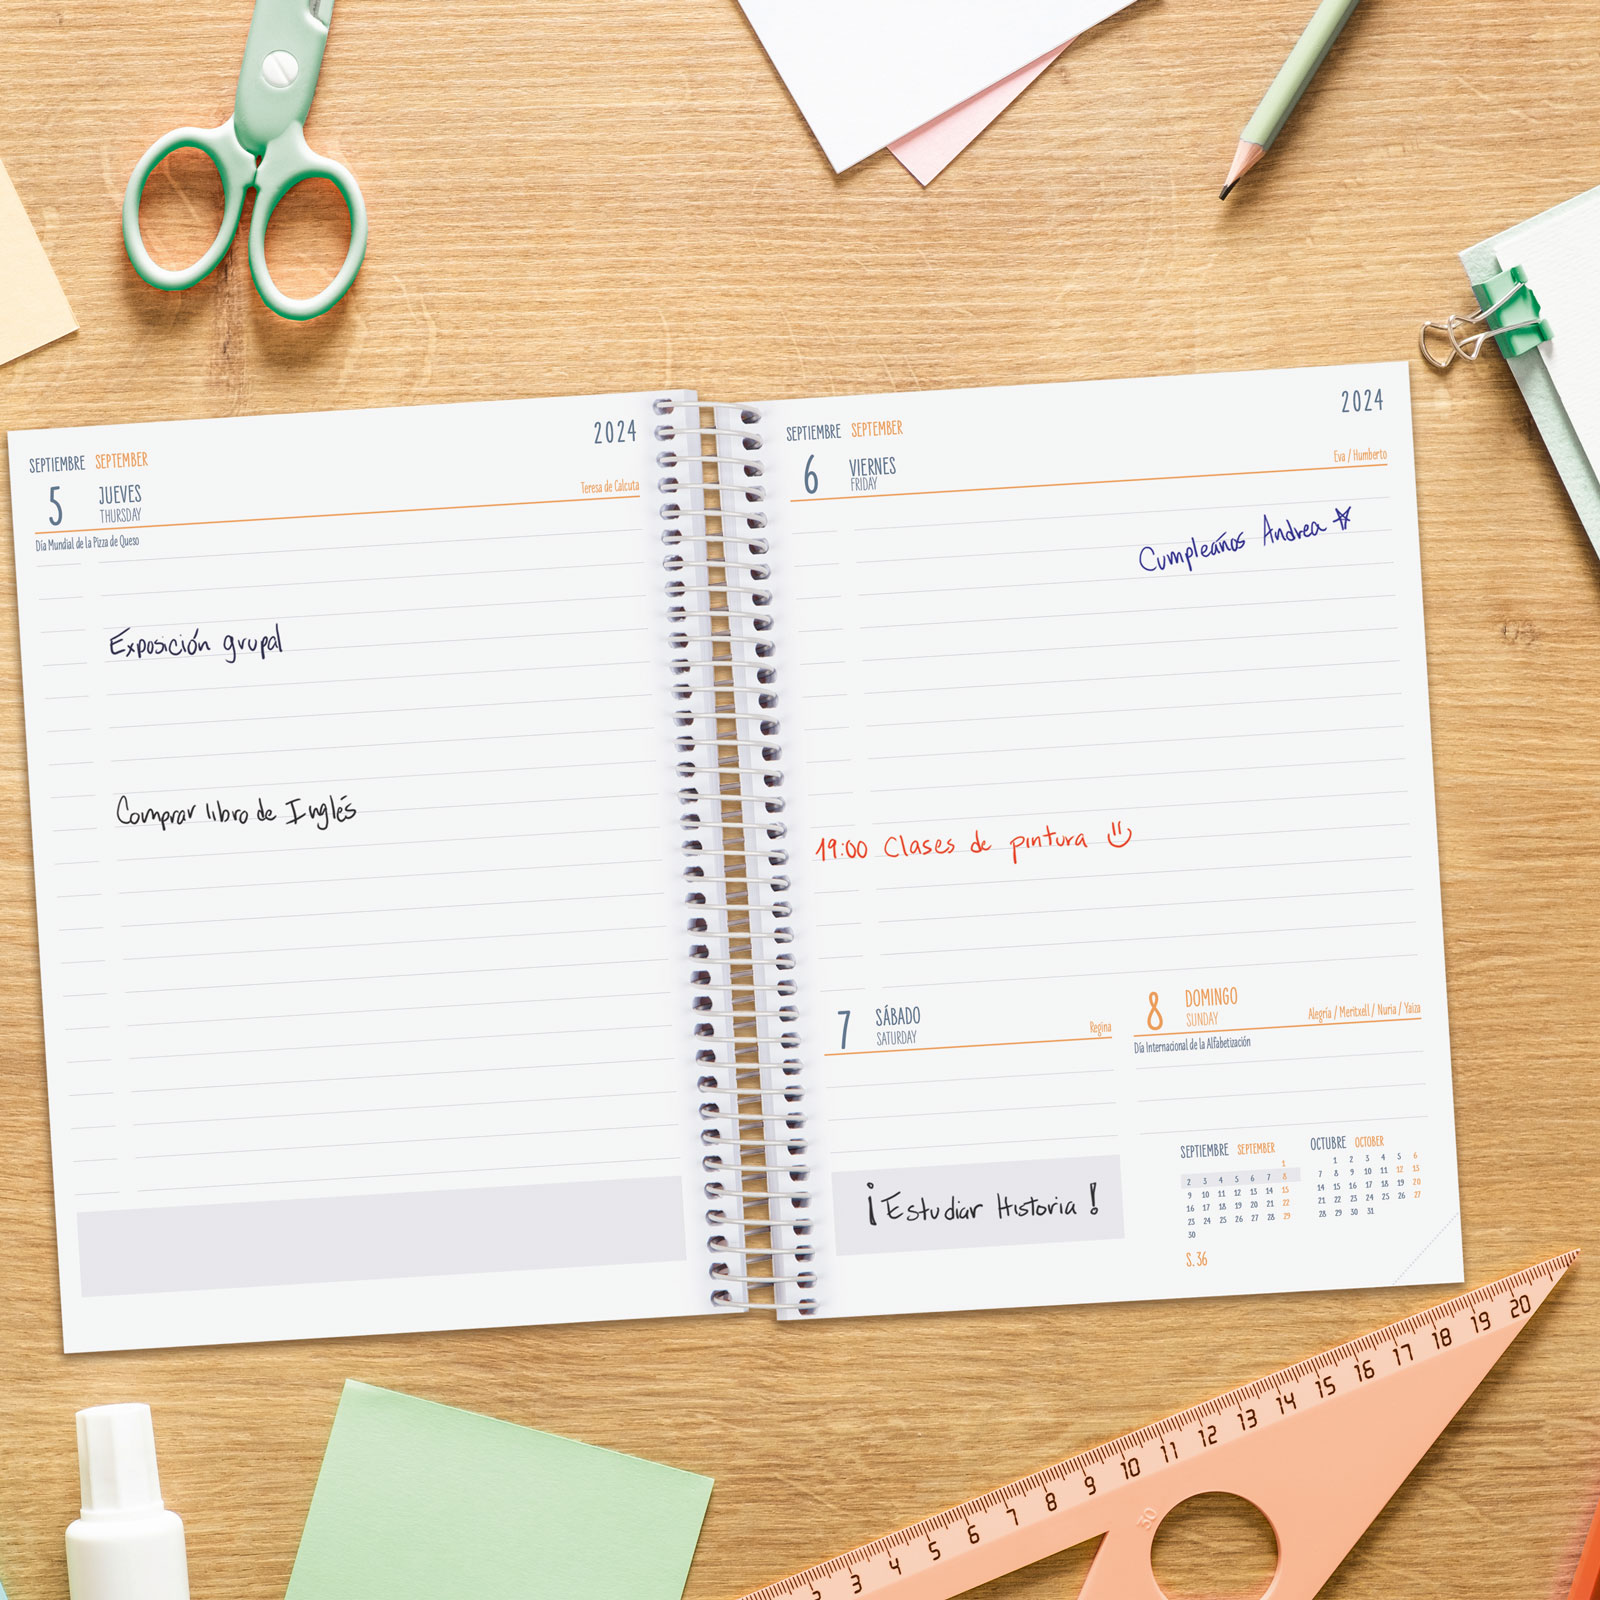 2024
SEPTIEMBRE SEPTEMBER
5 JUEVES
THURSDAY
Teresa de Calcuta
Día Mundial de la Pizza de Queso
Exposición grupal
Comprar libro de Inglés
2024
SEPTIEMBRE SEPTEMBER
6 VIERNES
FRIDAY
Eva / Humberto
Cumpleaños Andrea
19:00 Clases de pintura
7 SÁBADO
SATURDAY
Regina
8 DOMINGO
SUNDAY
Alegría / Meritxell / Nuria / Yaiza
Día Internacional de la Alfabetización
¡Estudiar Historia!
SEPTIEMBRE SEPTEMBER
1
2 3 4 5 6 7 8
9 10 11 12 13 14 15
16 17 18 19 20 21 22
23 24 25 26 27 28 29
30
S. 36
OCTUBRE OCTOBER
1 2 3 4 5 6
7 8 9 10 11 12 13
14 15 16 17 18 19 20
21 22 23 24 25 26 27
28 29 30 31
2 3 4 5 6 7 8 9 10 11 12 13 14 15 16 17 18 19 20
30